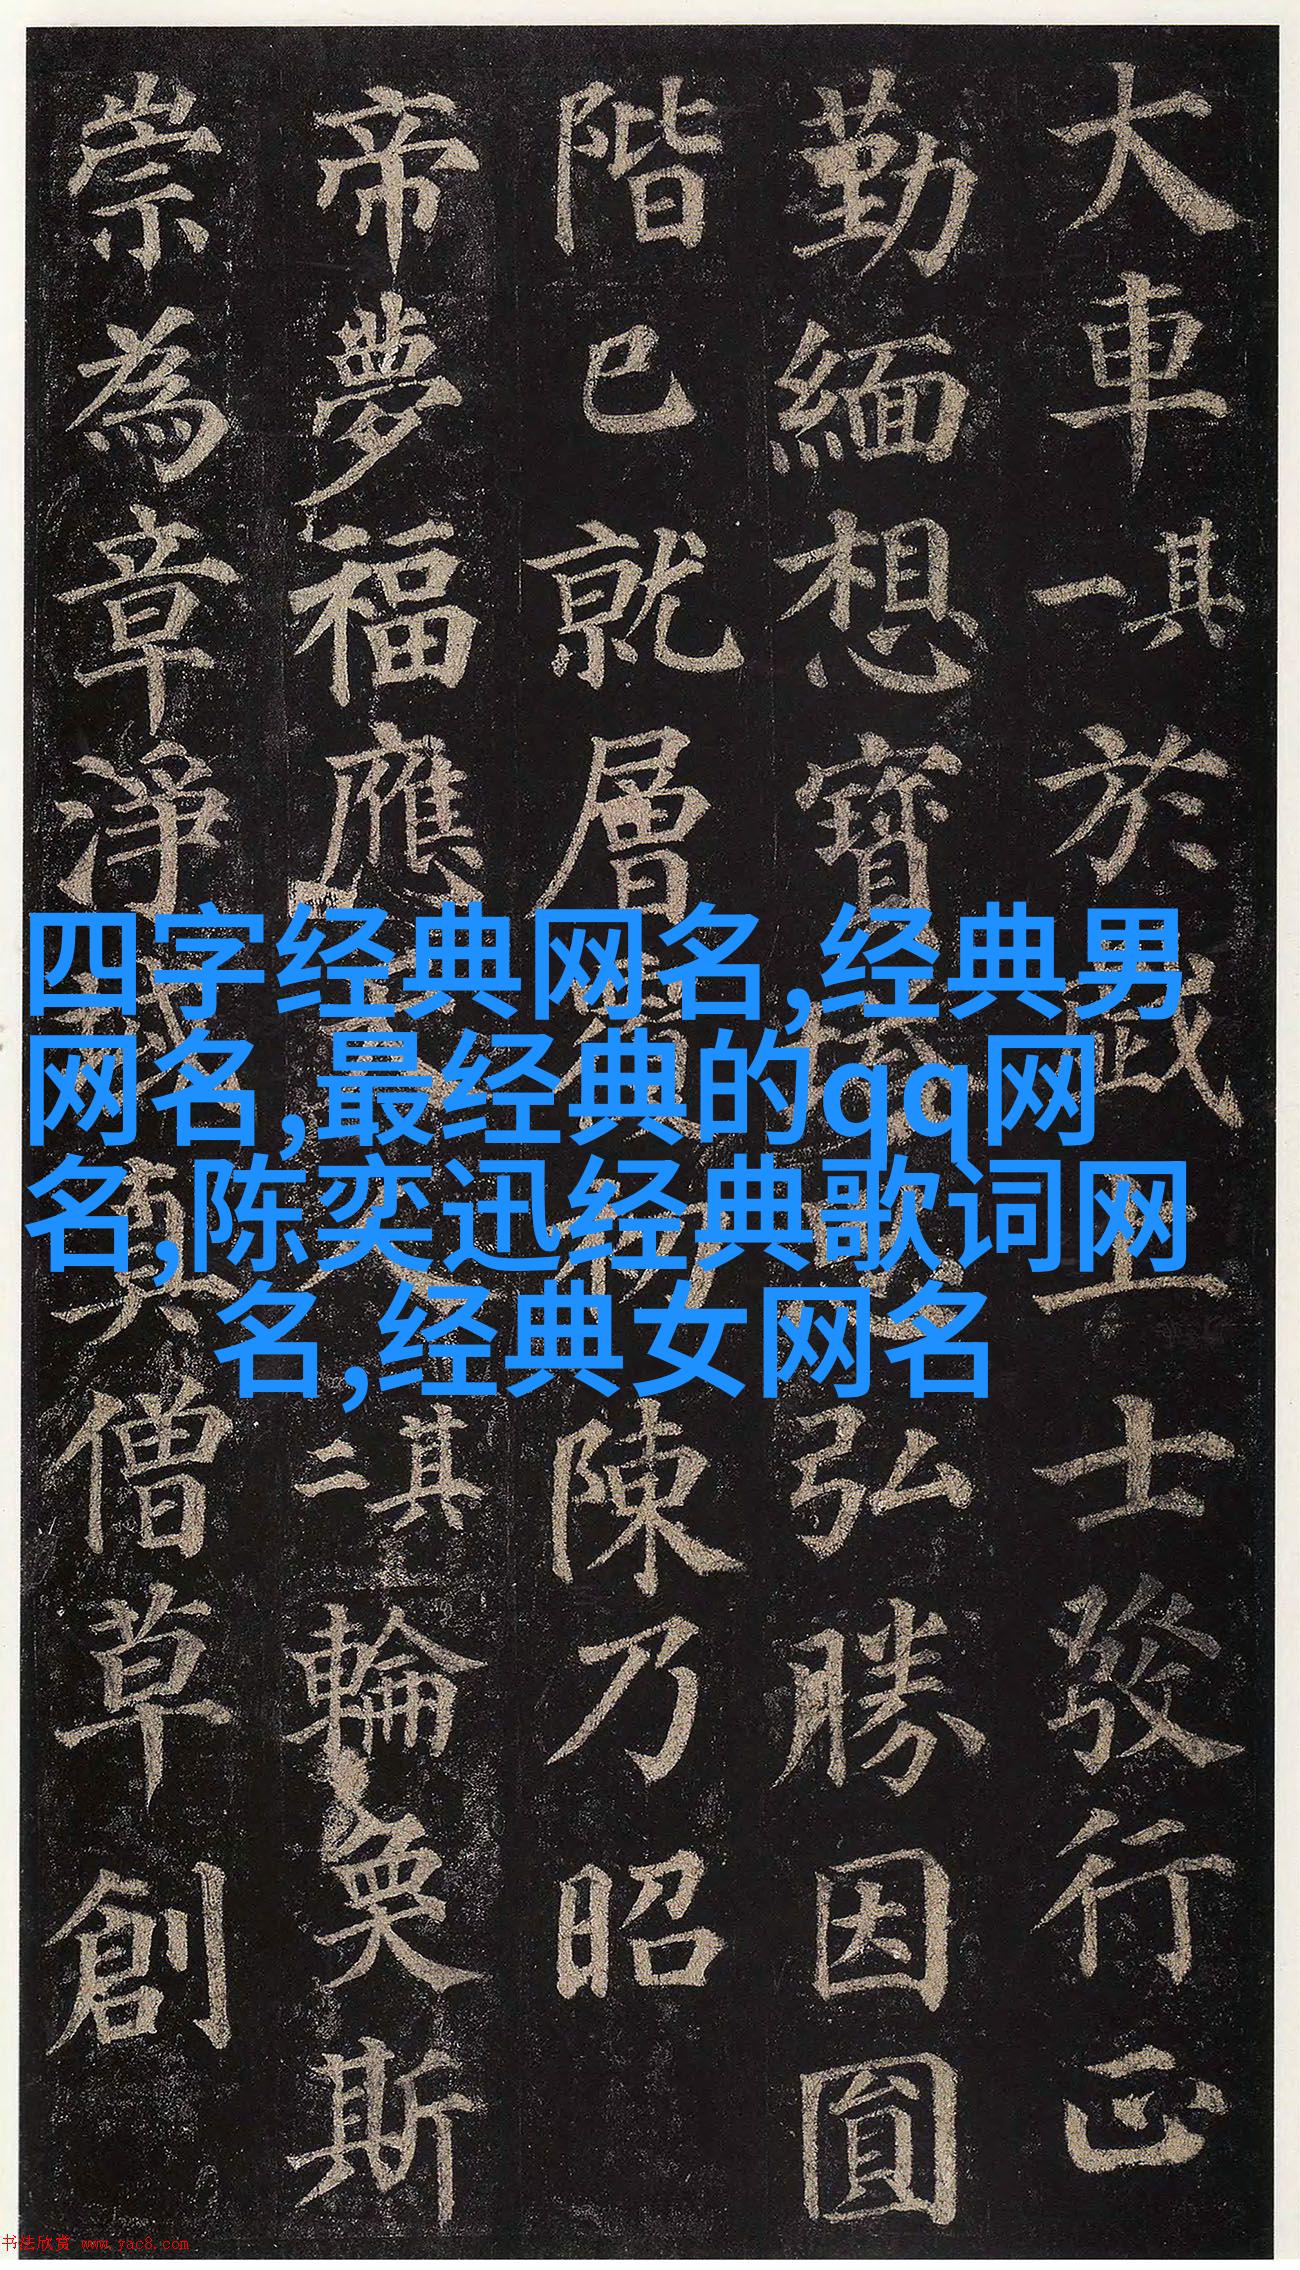 大車其一於上士發行正
勤緬想寶弘勝因圓
階已就層陳乃昭
帝夢福應其二輪奐斯
崇為章淨真僧草創
四字经典网名,经典男
网名,最经典的qq网
名,陈奕迅经典歌词网
名,经典女网名
书法欣赏 www.yac8.com